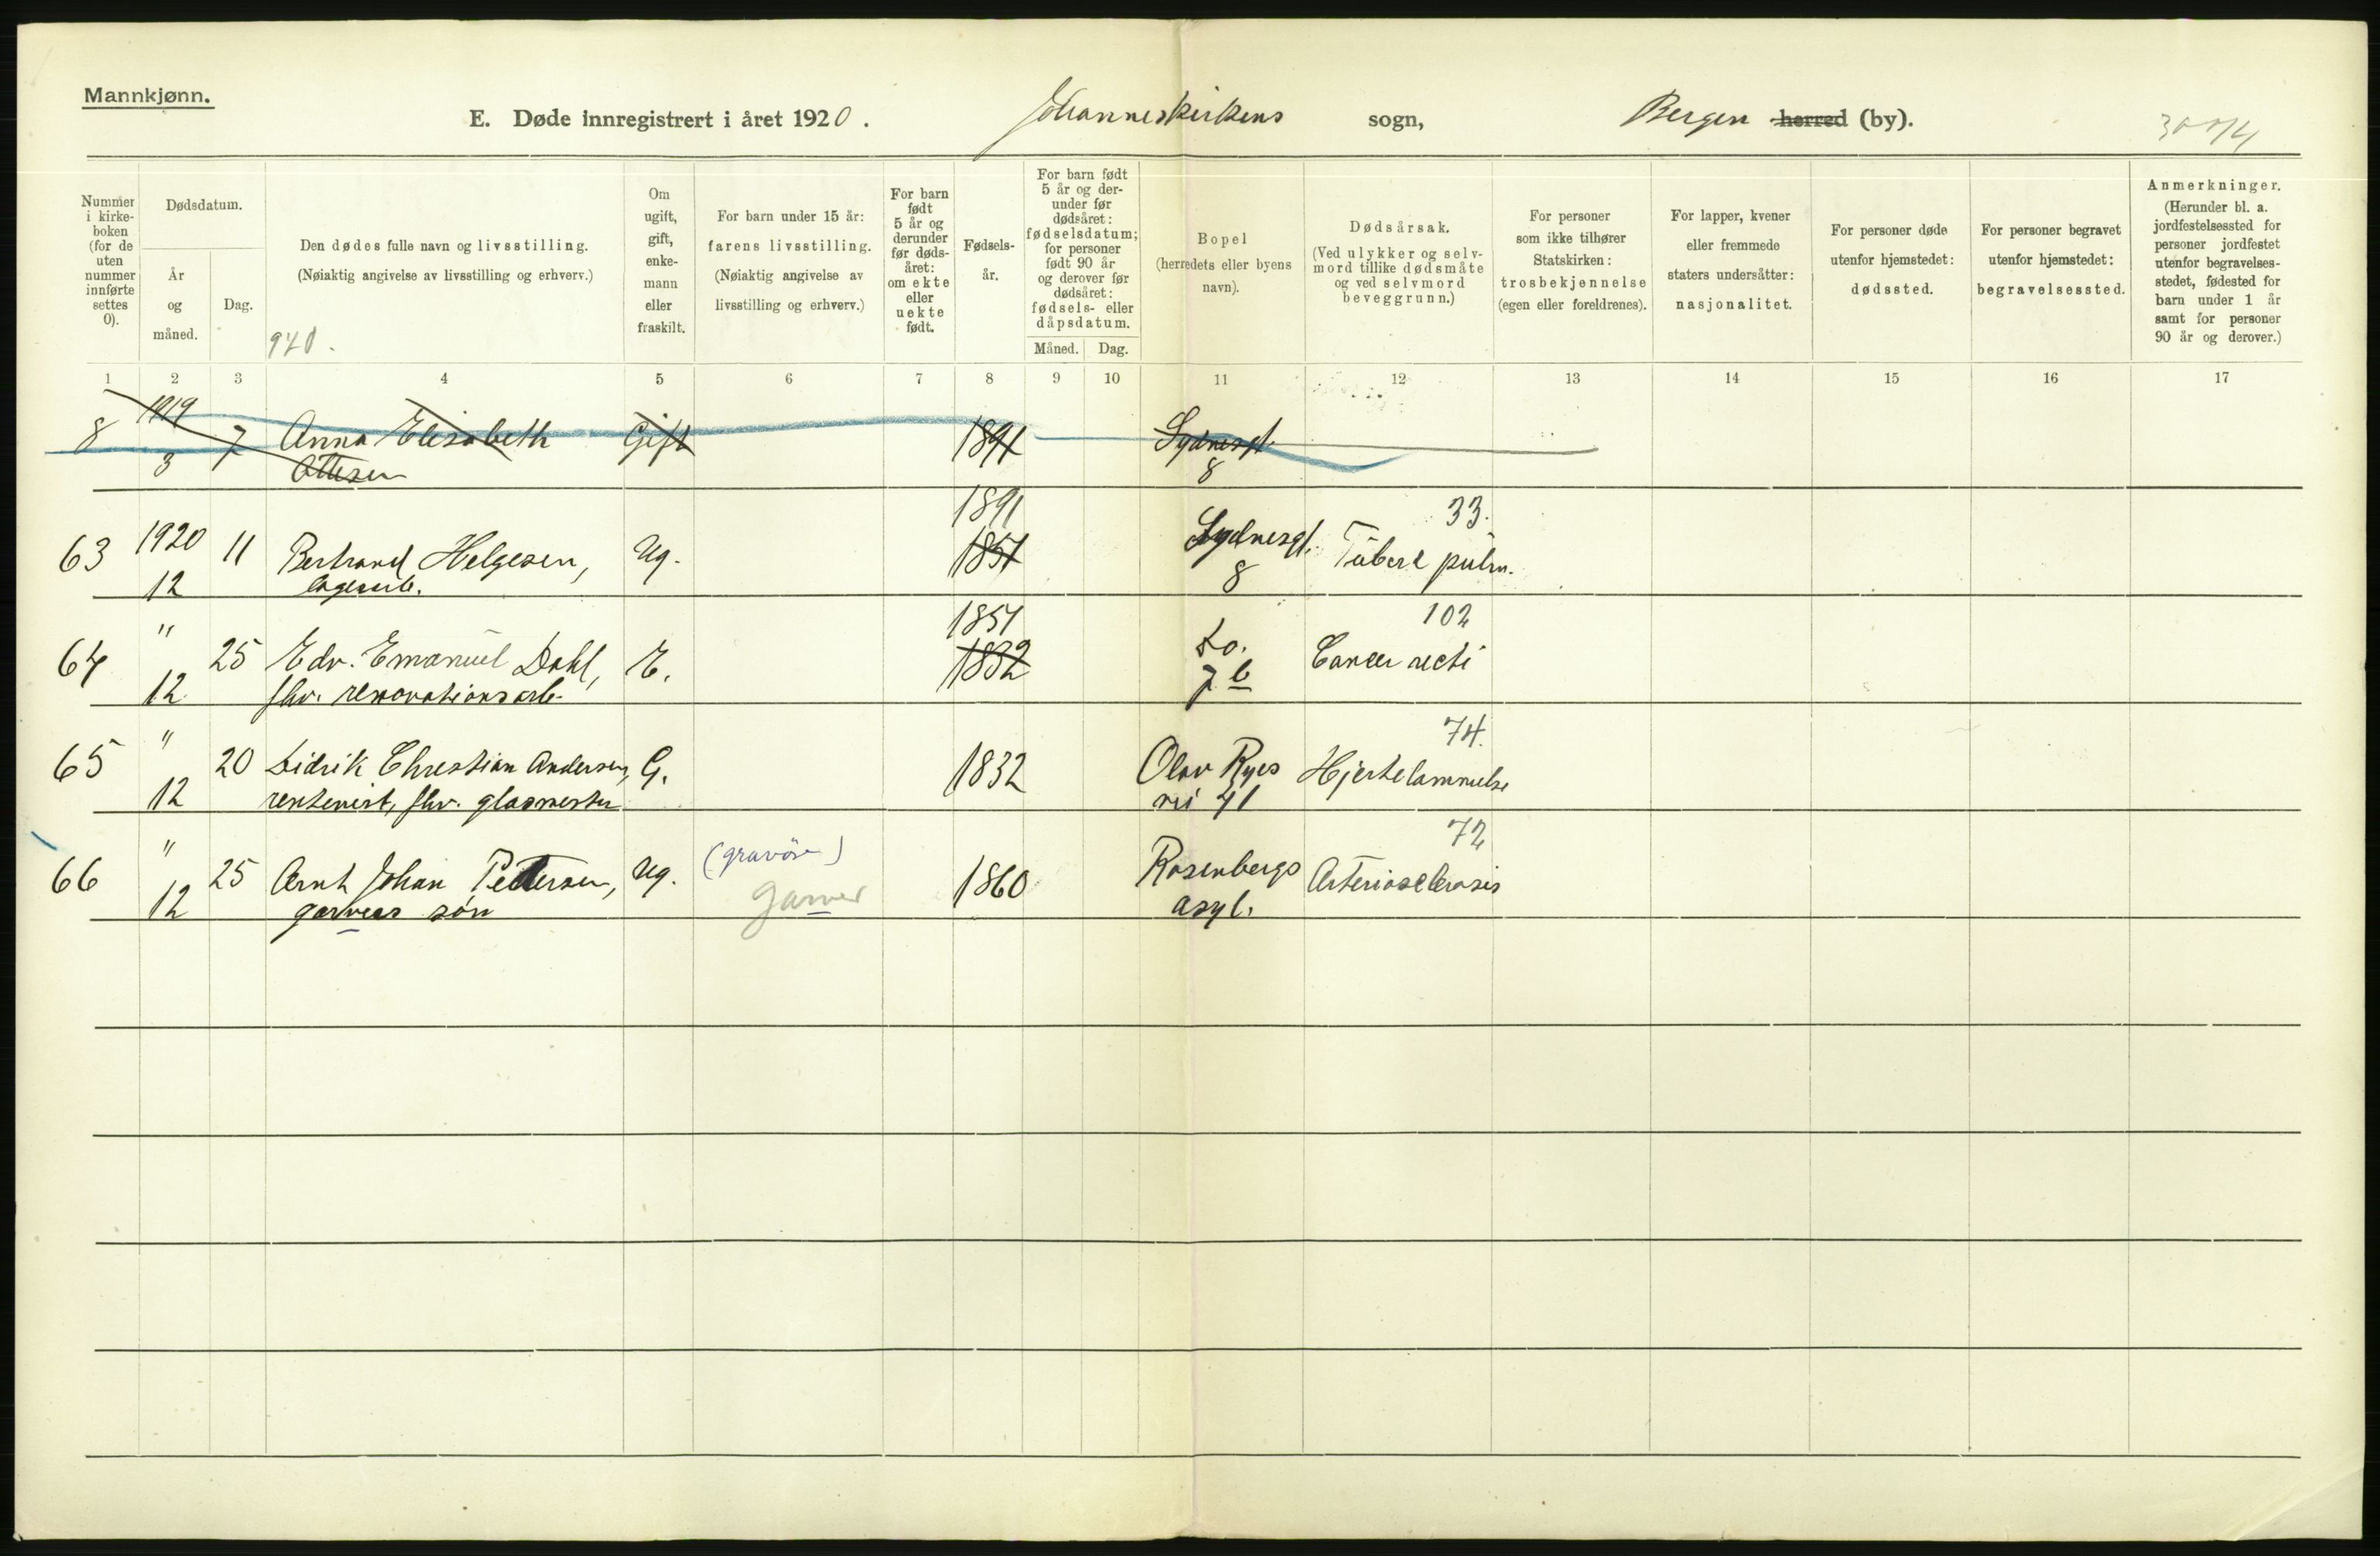 Mannkjønn.
E. Døde innregistrert i året 1920. Johanneskirkens sogn, Bergen herred (by).
Nummer i kirke- boken (for de uten nummer innførte settes 0).
Dødsdatum.
År og måned.
Dag.
Den dødes fulle navn og livsstilling.
(Nøiaktig angivelse av livsstilling og erhverv.)
940.
Om ugift, gift, enke- mann eller fraskilt.
For barn under 15 år:
farens livsstilling.
(Nøiaktig angivelse av
livsstilling og erhverv.)
For barn født 5 år og derunder før døds- året: om ekte eller uekte født.
Fødsels- år.
For barn født 5 år og der- under før dødsåret: fødselsdatum; for personer født 90 år og derover før dødsåret: fødsels- eller dåpsdatum.
Måned. Dag.
Bopel
(herredets eller byens
navn).
Dødsårsak.
(Ved ulykker og selv-
mord tillike dødsmåte
og ved selvmord
beveggrunn.)
For personer
som ikke tilhører
Statskirken:
trosbekjennelse
(egen eller foreldrenes).
For lapper, kvener
eller fremmede
staters undersåtter:
nasjonalitet.
For personer døde
utenfor hjemstedet:
dødssted.
For personer begravet
utenfor hjemstedet:
begravelsessted.
Anmerkninger.
(Herunder bl. a.
jordfestelsessted for
personer jordfestet
utenfor begravelses-
stedet, fødested for
barn under 1 år
samt for personer
90 år og derover.)
1 2 3 4 5 6 7 8 9 10 11 12 13 14 15 16 17
8 1919 3 7 Anna Elisabeth Gift 1891 Sydnesgt.
Ottesen 8
63 1920 12 11 Bertrand Helgesen, Ug. 1891 1851 Sydnesgt. 8 33. Tuberc pulm.
lagerarb.
64 " 12 25 Edv. Emanuel Dahl, E. 1851 1832 Do. 7 b 102 Cancer recti
fhv. renovationsarb.
65 " 12 20 Didrik Christian Andersen, G. 1832 Olav Ryes vei 41 74. Hjertelammelse
rentenist, fhv. glasmester
66 " 12 25 Arnt Johan Pettersen, Ug. (gravör) garver 1860 Rosenbergs asyl. 72 Arteriosclerosis
garvers søn